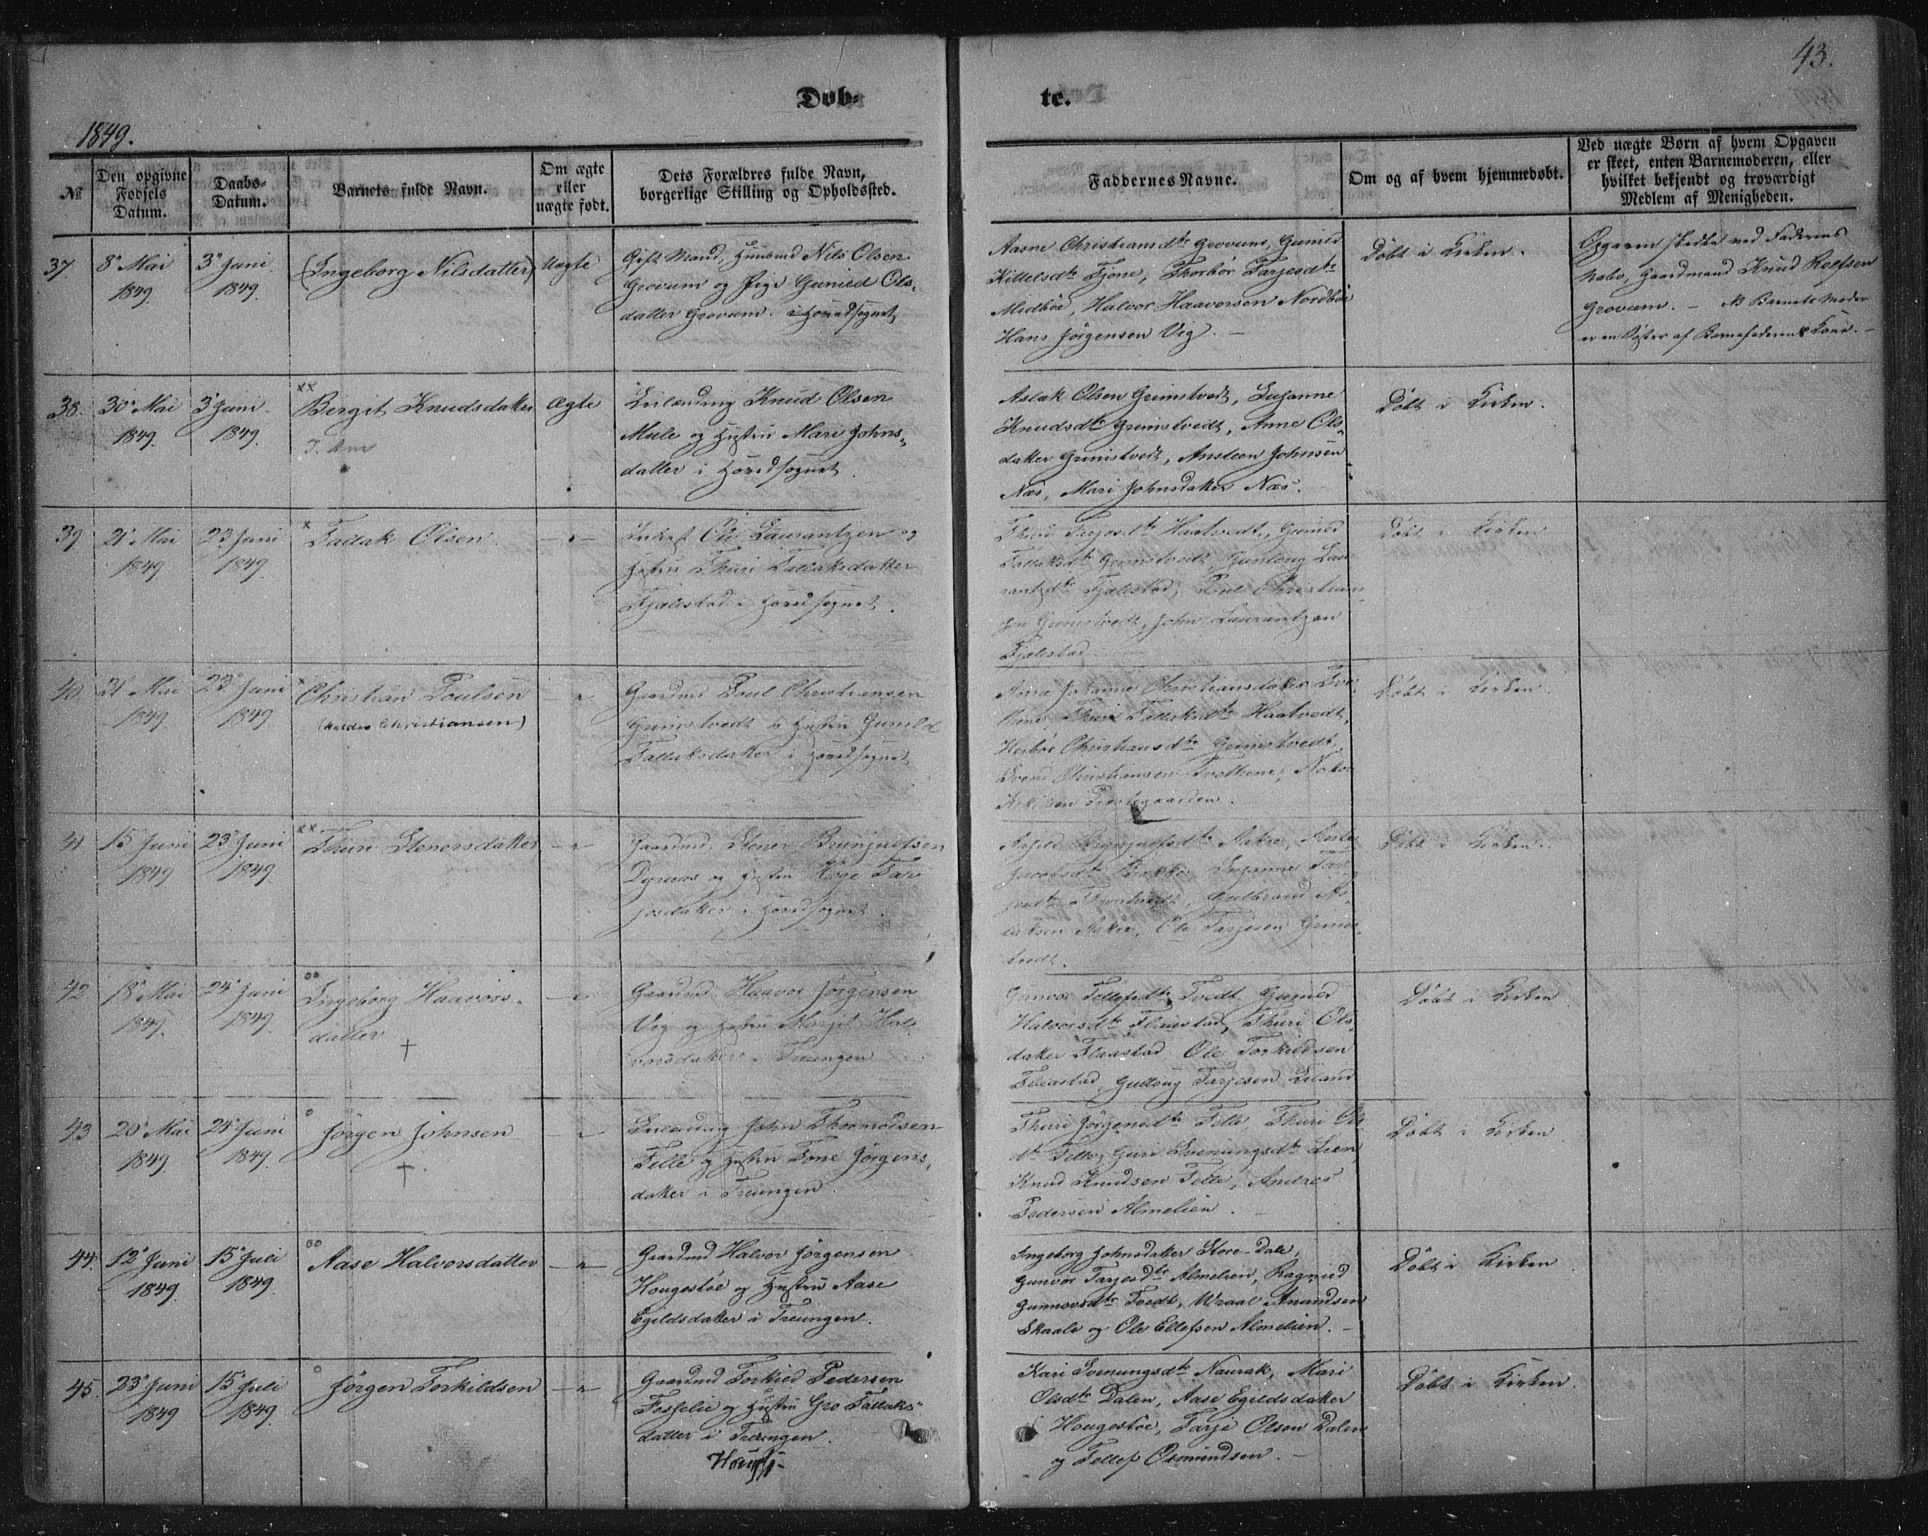 43.
Døb-
te.
1849.
№
Den opgivne Fødsels Datum.
Daabs-Datum.
Barnets fulde Navn.
Om ægte eller uægte født.
Dets Forældres fulde Navn, borgerlige Stilling og Opholdssted.
Faddernes Navne.
Om og af hvem hjemmedøbt.
Ved uægte Børn af hvem Opgaven er skeet, enten Barnemoderen, eller hvilket bekjendt og troværdigt Medlem af Menigheden.
37.
8de Mai
1849.
3die Juni
1849.
(Ingeborg Nilsdatter)
Uægte
Gift Mand, Huusmd Nils Olsen
Grovum og Pige Gunild Ols-
datter Grovum. i Hovedsognet
Aasne Christiansdtr Grovum, Gunild
Kittelsdtr Fjone, Thorbør Tarjesdtr
Midbøe, Halvor Haavorsen Nordbøe
Hans Jørgensen Vig. -
Døbt i Kirken.
Opgaven skedte ved Faderens
Nabo, Gaardmand Knud Rolfsen
Grovum. - NB Barnets Moder
er en Søster af Barnefaderens Kone. -
38.
30te Mai
1849.
3die Juni
1849.
xx
Bergit Knudsdatter
Ægte
Leilænding Knud Olsen
Mule og Hustru Mari Johns-
datter i Hovedsognet.
Aslak Olsen Grimstvedt, Susanne
Knudsdtr Grimstvedt, Anne Ols-
datter Grimstvedt, Ansteen Johnsen
Næs, Mari Johnsdatter Næs.
Døbt i Kirken.
39
21de Mai
1849
23de Juni
1849.
x
Tallak Olsen.
Ole Laurantzen og
Hustru Thuri Tallaksdatter
Fjalestad i Hovedsognet.
Thuri Tarjesdtr Haatvedt, Gunild
Tallaksdtr Grimstvedt, Gunlaug Lau-
rantzdtr Fjalestad, Poul Christian-
sen Grimstvedt, John Laurantzen
Fjalestad.
Døbt i Kirken
40.
31te Mai
1849.
23de Juni
1849
x
Christian Poulsen
(kaldes Christiansen)
Gaardmd Poul Christiansen
Grimstvedt og Hustru Gunild
Tallaksdatter i Hovedsognet
Christiansdatter
Thuri Haatvedt,
Herbør Christiansdtr Grimstvedt,
Svend Christiansen Tvettene,
Præstegaarden.
Døbt i Kirken.
41
15de Juni
1849
23de Juni
1849.
xx
Thuri Stenersdatter
Gaardmd. Stener Brynjulfsen
Dyraas og Hustru Tar-
jesdatter i Hovedsognet.
Brynjulfsdtr Aakre,
Jacobsdtr Bakke, Susanne Tar-
jesdtr Grimstvedt, Gulbrand As-
laksen Aakre, Ole Tarjesen Grims-
tvedt.
Døbt i Kirken.
42
18de Mai
1849.
24de Juni
1849.
oo
Ingeborg Haavors-
datter †
Gaardmd. Haavor Jørgensen
Vig og Hustru Margit Hal-
vorsdatter i Treungen
Gunvor Tellefsdtr Tvedt, Gunild
Halvorsdtr Flaastad, Thuri Ols-
datter Flaastad, Ole Torkildsen
Flaastad, Gutleng Tarjesen
Døbt i Kirken
43
20de Mai
1849.
24de Juni
1849.
o
Jørgen Johnsen
†.
Leilænding John Thormodsen
Felle og Hustru Tone Jørgens-
datter i Treungen.
Thuri Jørgensdtr Felle, Thuri Ols-
dtr Felle, Guri Svenungsdtr Lien
Knud Knudsen Felle, Andres
Pedersen Almelien.
Døbt i Kirken
44.
12te Juni
1849.
15de Juli
1849.
oo
Aase Halvorsdatter
Gaardmd Halvor Jørgensen
Hougestøe og Hustru Aase
Egildsdatter i Treungen.
Ingeborg Johnsdatter Store-Dale,
Gunvor Tarjesdtr Almelien, Ragnild
Gunnovsdtr Tvedt, Wraal Anundsen
Skaale og Ole Ellefsen Almelien. -
Døbt i Kirken
45.
23de Juni
1849
15de Juli
1849.
o
Jørgen Torkildsen
Gaardmd Torkild Pedersen
Fosselie og Hustru Gro Tallaks-
datter i Treungen.
Kari Svenungsdtr Naurak, Mari
Olsdtr Dalen, Aase Egildsdatter
Hougestøe, Tarje Olsen Dalen
og Tellef Osmundsen. -
Døbt i Kirken.